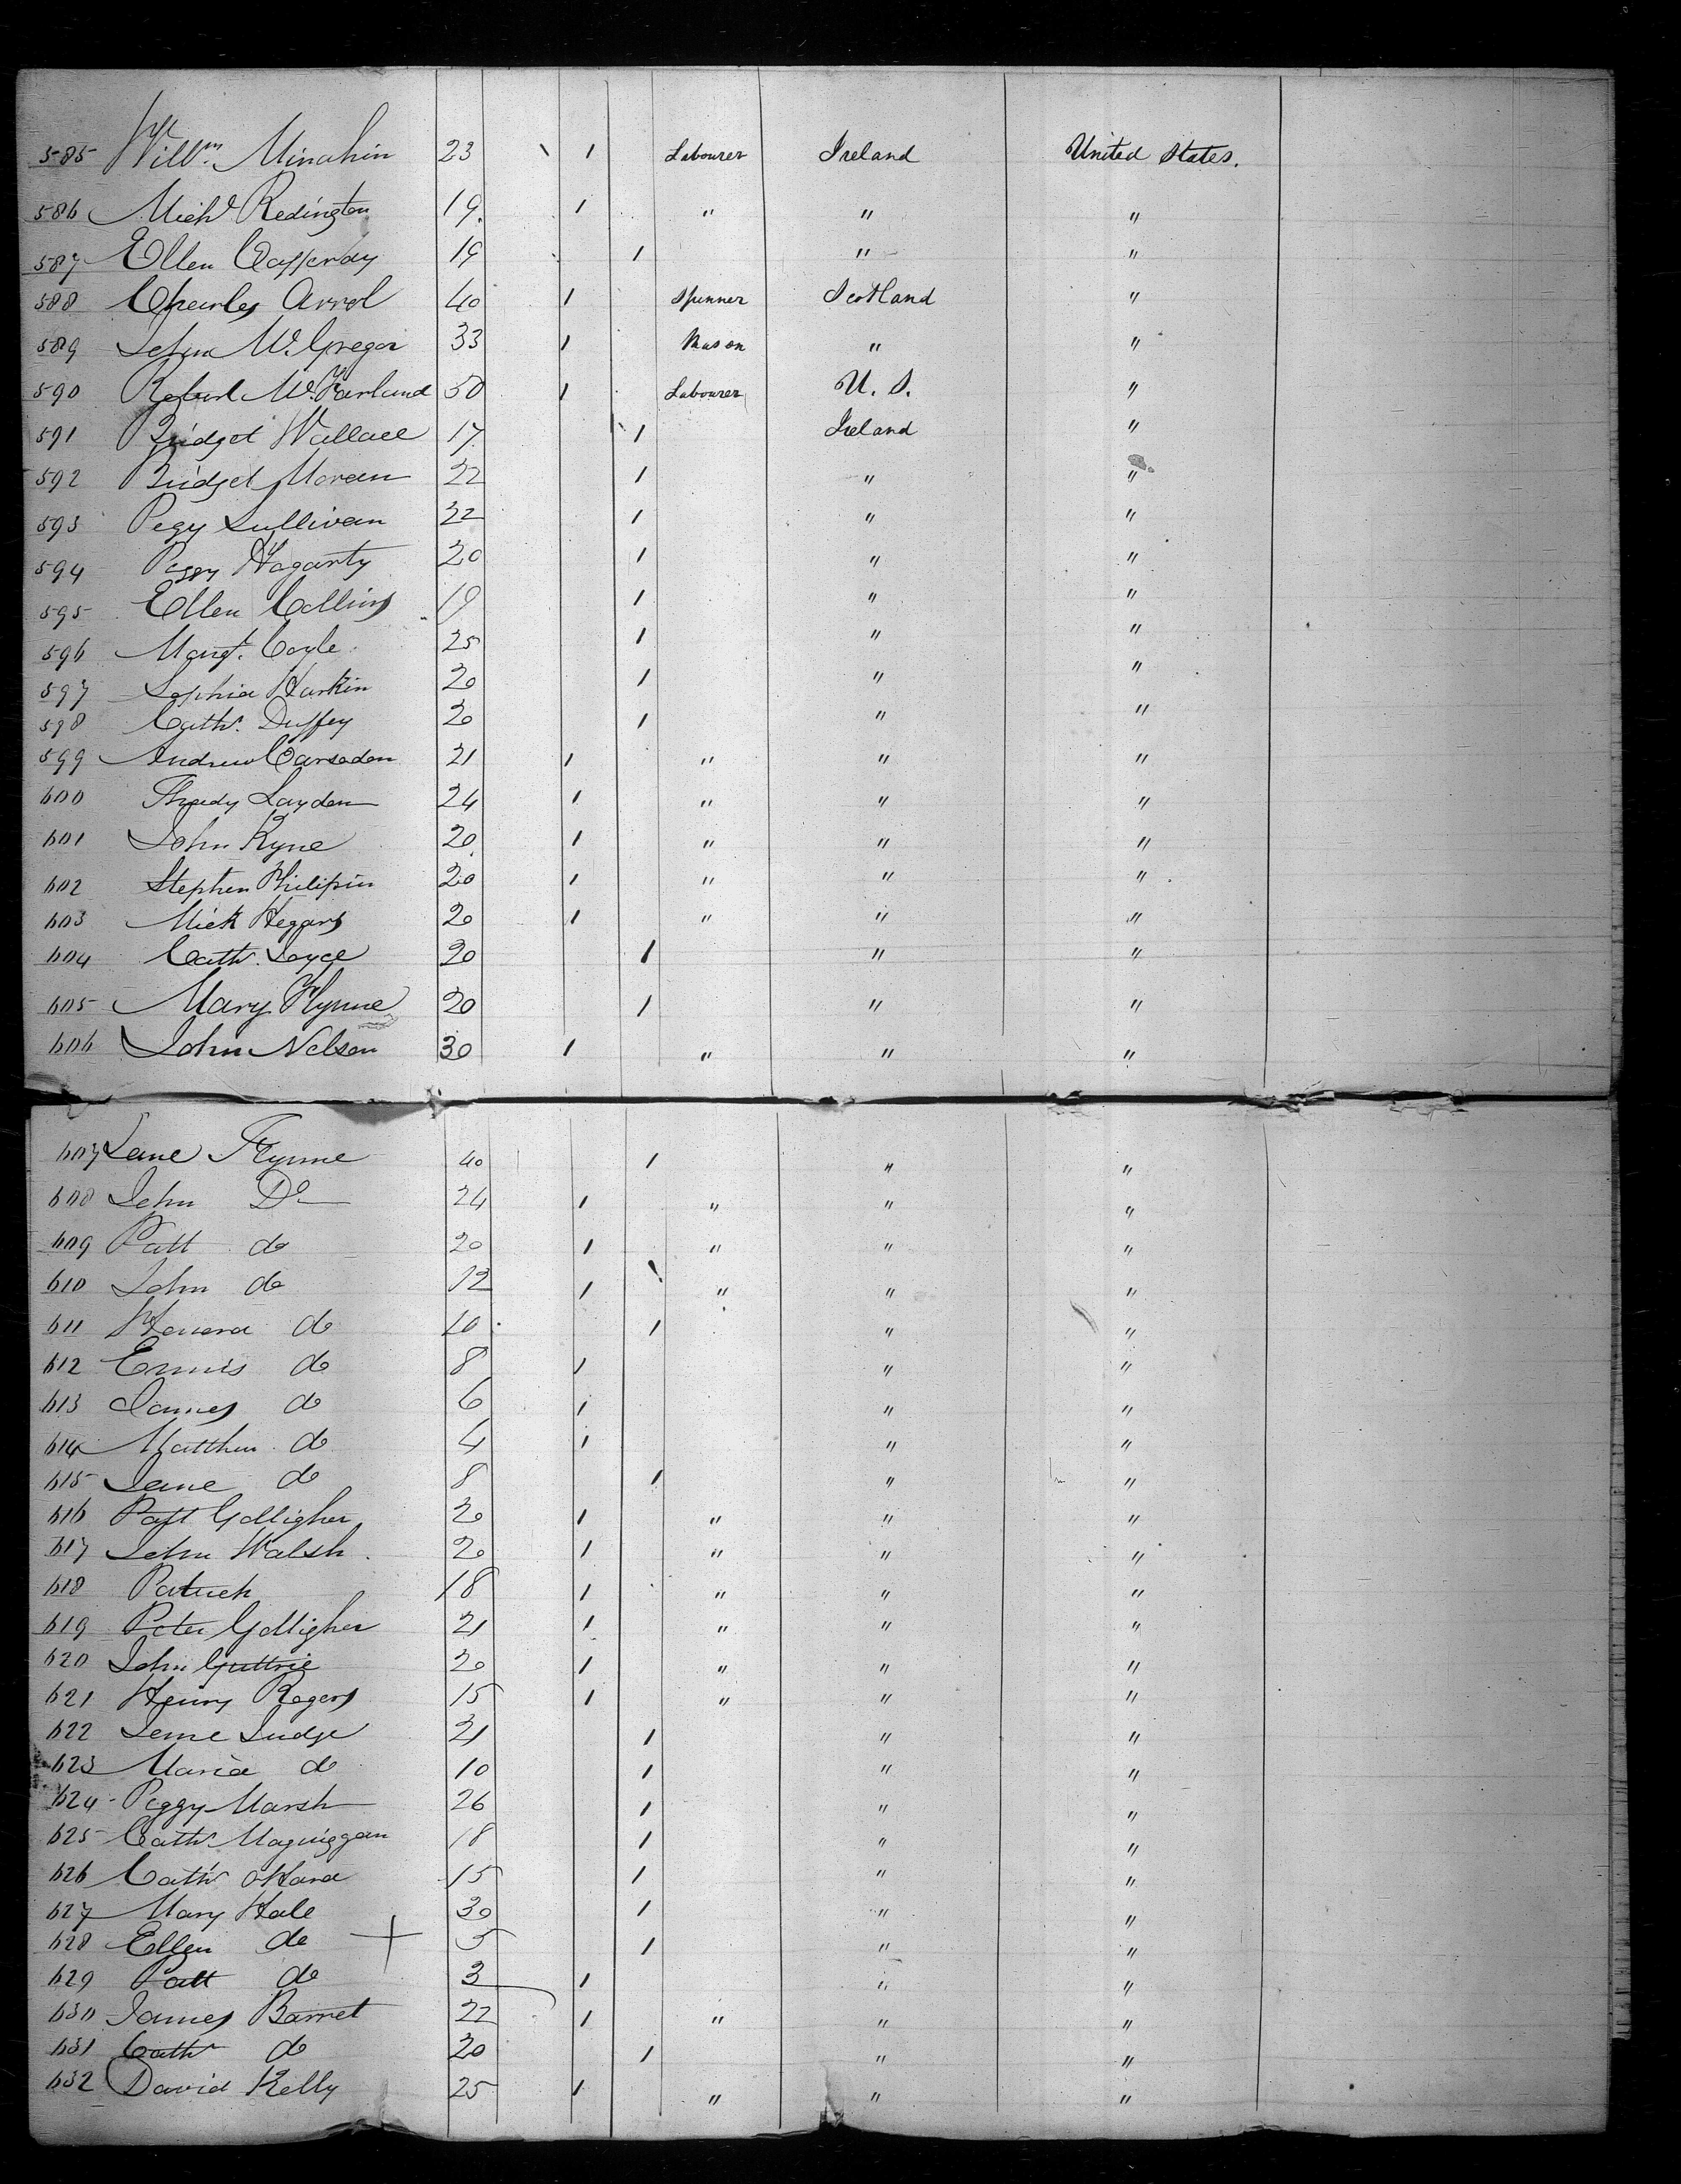 585 Willm. Minahin 23 1 Labourer Ireland United States.
586 Michl Redington 19. 1 " " "
587 Ellen Cafferday 19 1 " "
588 Charles Arrol 40 1 Spinner Scotland "
589 John McGregor 33 1 Mason " "
590 Robert McFarland 50 1 Labourer U. S. "
591 Bridget Wallace 17 1 Ireland "
592 Bridget Moran 22 1 " "
593 Pegy Sullivan 22 1 " "
594 Peggy Hagarty 20 1 " "
595 Ellen Collins 19 1 " "
596 Margt. Coyle 25 1 " "
597 Sophia Harkin 20 1 " "
598 Cath. Duffey 20 1 " "
599 Andrew Carsaden 21 1 " " "
600 Thady Layden 24 1 " " "
601 John Kyne 20 1 " " "
602 Stephen Philipin 20 1 " " "
603 Mick Heggars 20 1 " " "
604 Cath. Joyce 20 1 " "
605 Mary Flynne 20 1 " "
606 John Nelson 30 1 " " "
607 Jane Flynne 40 1 " "
608 John Do 24 1 " " "
609 Patt do 20 1 " " "
610 John do 12 1 " " "
611 Honora do 10 1 " "
612 Ennis do 8 1 " "
613 James do 6 1 " "
614 Matthew do 4 1 " "
615 Jane do 8 1 " "
616 Patt Golligher 20 1 " " "
617 John Walsh 20 1 " " "
618 Patrick 18 1 " " "
619 Peter Golligher 21 1 " " "
620 John Guttrie 20 1 " " "
621 Henry Rogers 15 1 " " "
622 Jane Judge 21 1 " "
623 Maria do 10 1 " "
624 Peggy Marsh 26 1 " "
625 Cath. Maguiggan 18 1 " "
626 Cath. OHara 15 1 " "
627 Mary Hale 30 1 " "
628 Ellen do 5 1 " "
629 Patt do 3 1 " "
630 James Barret 22 1 " " "
631 Cath. do 20 1 " "
632 David Kelly 25 1 " " "